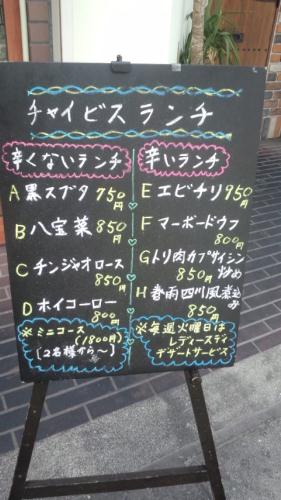 チャイビス ランチ
辛くないランチ
A 黒スブタ 750円
B 八宝菜 850円
C チンジャオロース 850円
D ホイコーロー 800円
※ミニコース
(1800円)
[2名様から〜]
辛いランチ
E エビチリ 950円
F マーボードウフ 800円
G トリ肉カプサイシン炒め 850円
H 春雨四川風煮込み 850円
※毎週火曜日は
レディースディ
デザートサービス